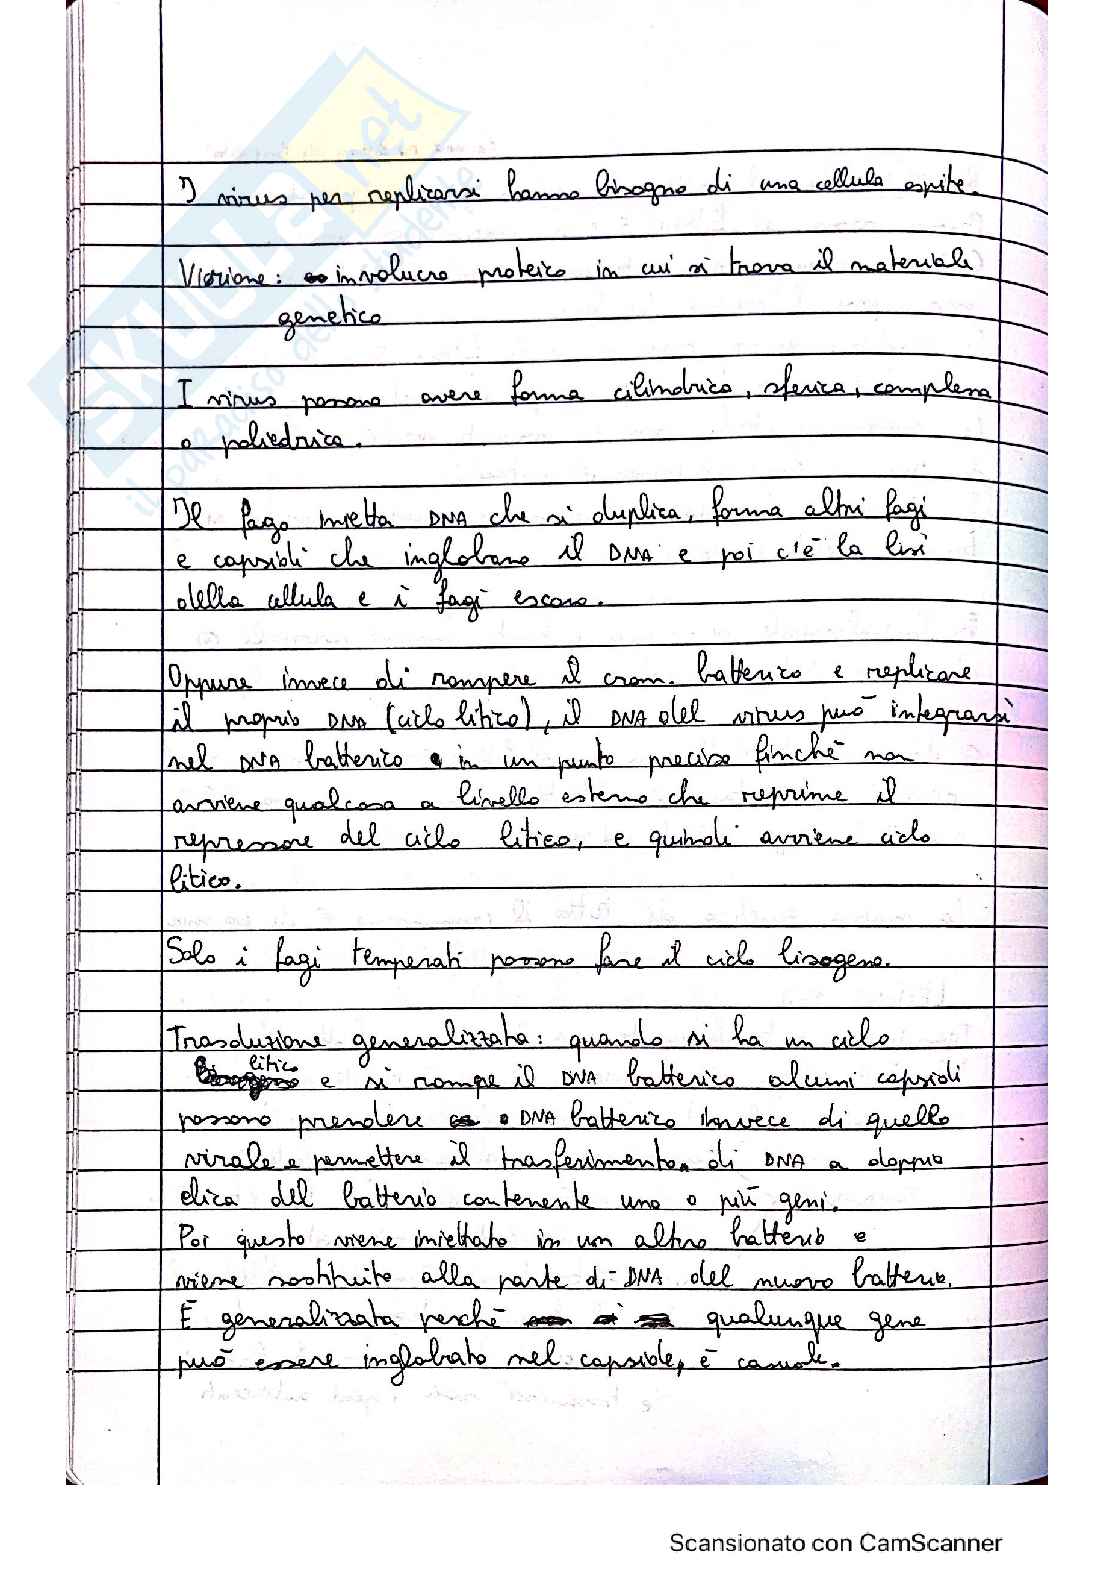 I virus per replicarsi hanno bisogno di una cellula ospite.
Virione: involucro proteico in cui si trova il materiale
genetico
I virus possono avere forma cilindrica, sferica, complessa
o poliedrica.
Il fago inietta DNA che si duplica, forma altri fagi
e capsidi che inglobano il DNA e poi c'è la lisi
della cellula e i fagi escono.
Oppure invece di rompere il crom. batterico e replicare
il proprio DNA (ciclo litico), il DNA del virus può integrarsi
nel DNA batterico in un punto preciso finchè non
avviene qualcosa a livello esterno che reprime il
repressore del ciclo litico, e quindi avviene ciclo
litico.
Solo i fagi temperati possono fare il ciclo lisogeno.
Trasduzione generalizzata: quando si ha un ciclo
litico e si rompe il DNA batterico alcuni capsidi
possono prendere DNA batterico invece di quello
virale e permettere il trasferimento di DNA a doppia
elica del batterio contenente uno o più geni.
Poi questo viene iniettato in un altro batterio e
viene sostituito alla parte di DNA del nuovo batterio.
È generalizzata perchè qualunque gene
può essere inglobato nel capside, è casuale.
SKUOLA.net
il paradiso dello studente
Scansionato con CamScanner